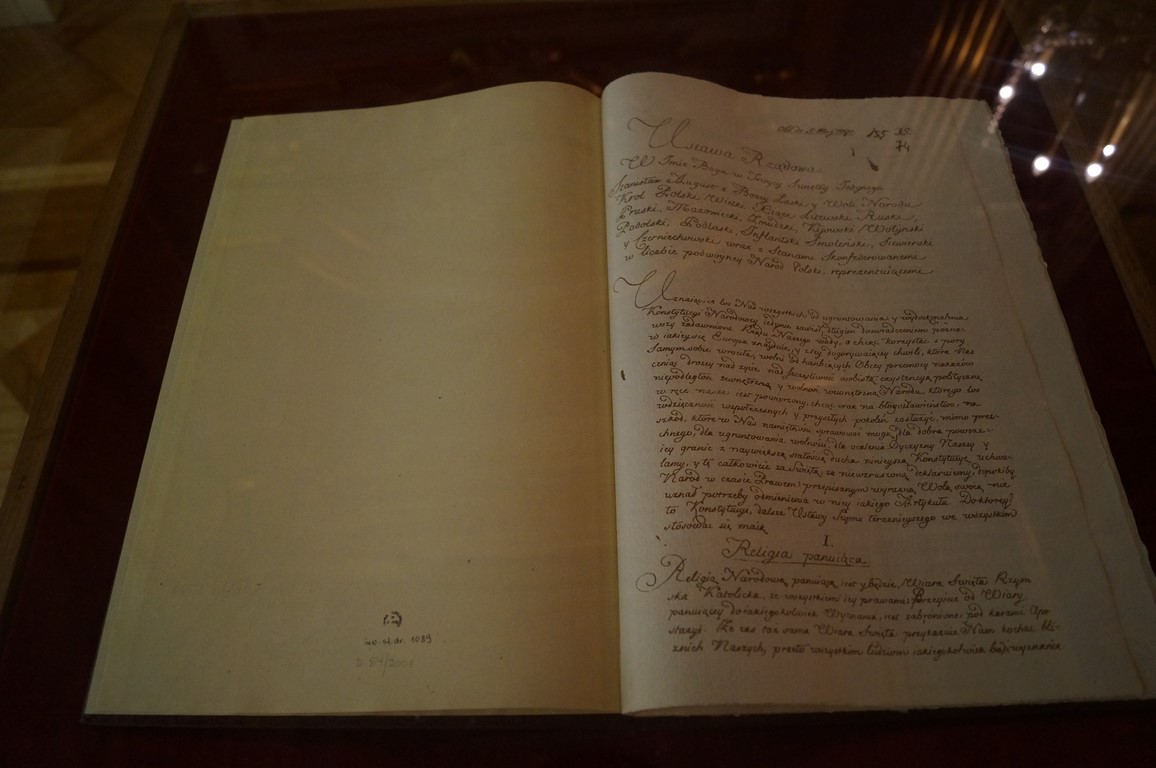 inw. st. dr. 1089
D 84/2001
155 35.
74
Ustawa Rządowa.
W Imie Boga w Troycy Swiętey Jedynego
Stanisław August z Bozey Łaski, y Woli Narodu
Krol Polski, Wielki Xiąże Litewski, Ruski,
Pruski, Mazowiecki, Zmudzki, Kijowski, Wołynski
Podolski, Podlaski, Inflantski Smoleński, Siewierski
y Czerniechowski wraz z Stanami Skonfederowanemi
w liczbie podwoyney Narod Polski, reprezentuiącemi
Uznaiąc, iż los Nas wszystkich od ugruntowania y wydoskonalenia
Konstytucyi Narodowey iedynie zawisł, długim doswiadczeniem pozna-
wszy zadawnione Rządu Naszego wady, a chcąc korzystać z pory
w iakieysię Europa znayduie, y z tey dogorywaiącey chwili, ktora Nas
samym sobie wrociła, wolni od hanbiących Obcey przemocy nakazow
ceniąc drozey nad zycie nad szczęsliwosc osobistą exystencyą polityczną
niepodległosc zewnętrzną y wolnosc wewnętrzną Narodu, ktorego los
w ręce nasze iest powierzony, chcąc oraz na błogosławienstwo, na
wdzięcznosc wspołczesnych y przyszłych pokolen zasłuzyć, mimo prze-
szkod, ktore w Nas namiętnosci sprawować mogą, dla dobra powsze-
chnego, dla ugruntowania wolnosci, dla ocalenia Oyczyzny Naszey y
iey granic z naywiększą stałoscią ducha ninieyszą Konstytucyę uchwa-
lamy, y tę całkowicie za swiętą, za niewzruszoną deklaruiemy, dopokiby
Narod w czasie Prawem przepisanym wyrazną Wolą swoią nie
uznał potrzeby odmienienia w niey iakiego Artykułu Do ktorey
to Konstytucyi, dalsze Ustawy Seymu teraznieyszego we wszystkim
stosować się maią
I.
Religia panuiąca.
Religią Narodową panuiącą iest y będzie, Wiara Swięta Rzym
ska Katolicka, ze wszystkiemi iey prawami; Przeyscie od Wiary
panuiącey do iakiegokolwiek Wyznania, iest zabronione pod karami Apo
stazyi. Ze zas taz sama Wiara Swięta przykazuie Nam kochać bli-
znich Naszych, przeto wszystkim ludziom iakiegokolwiek bądz wyznania